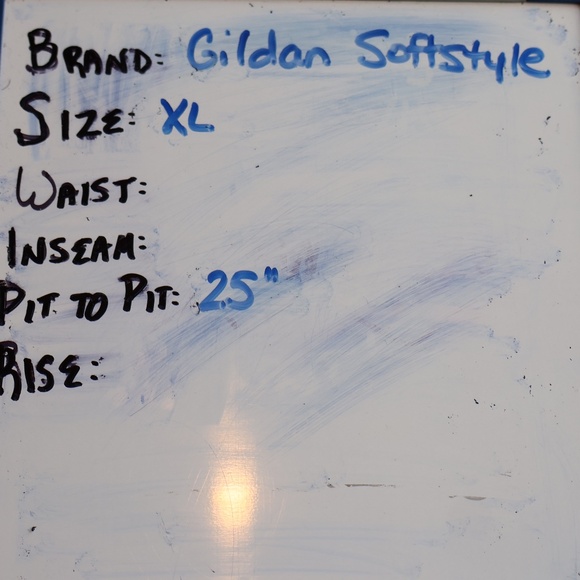 BRAND: Gildan Softstyle
SIZE: XL
WAIST:
INSEAM:
PIT TO PIT: 25"
RISE: